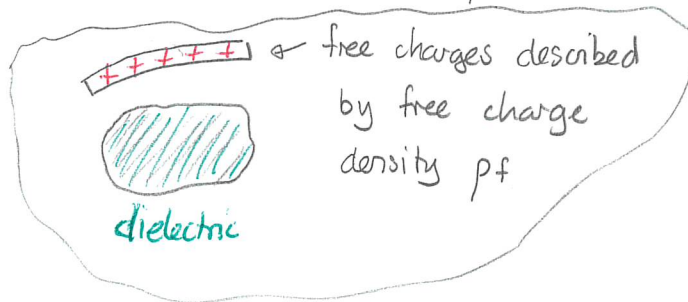 + + + + +
free charges described
by free charge
density ρf
dielectric